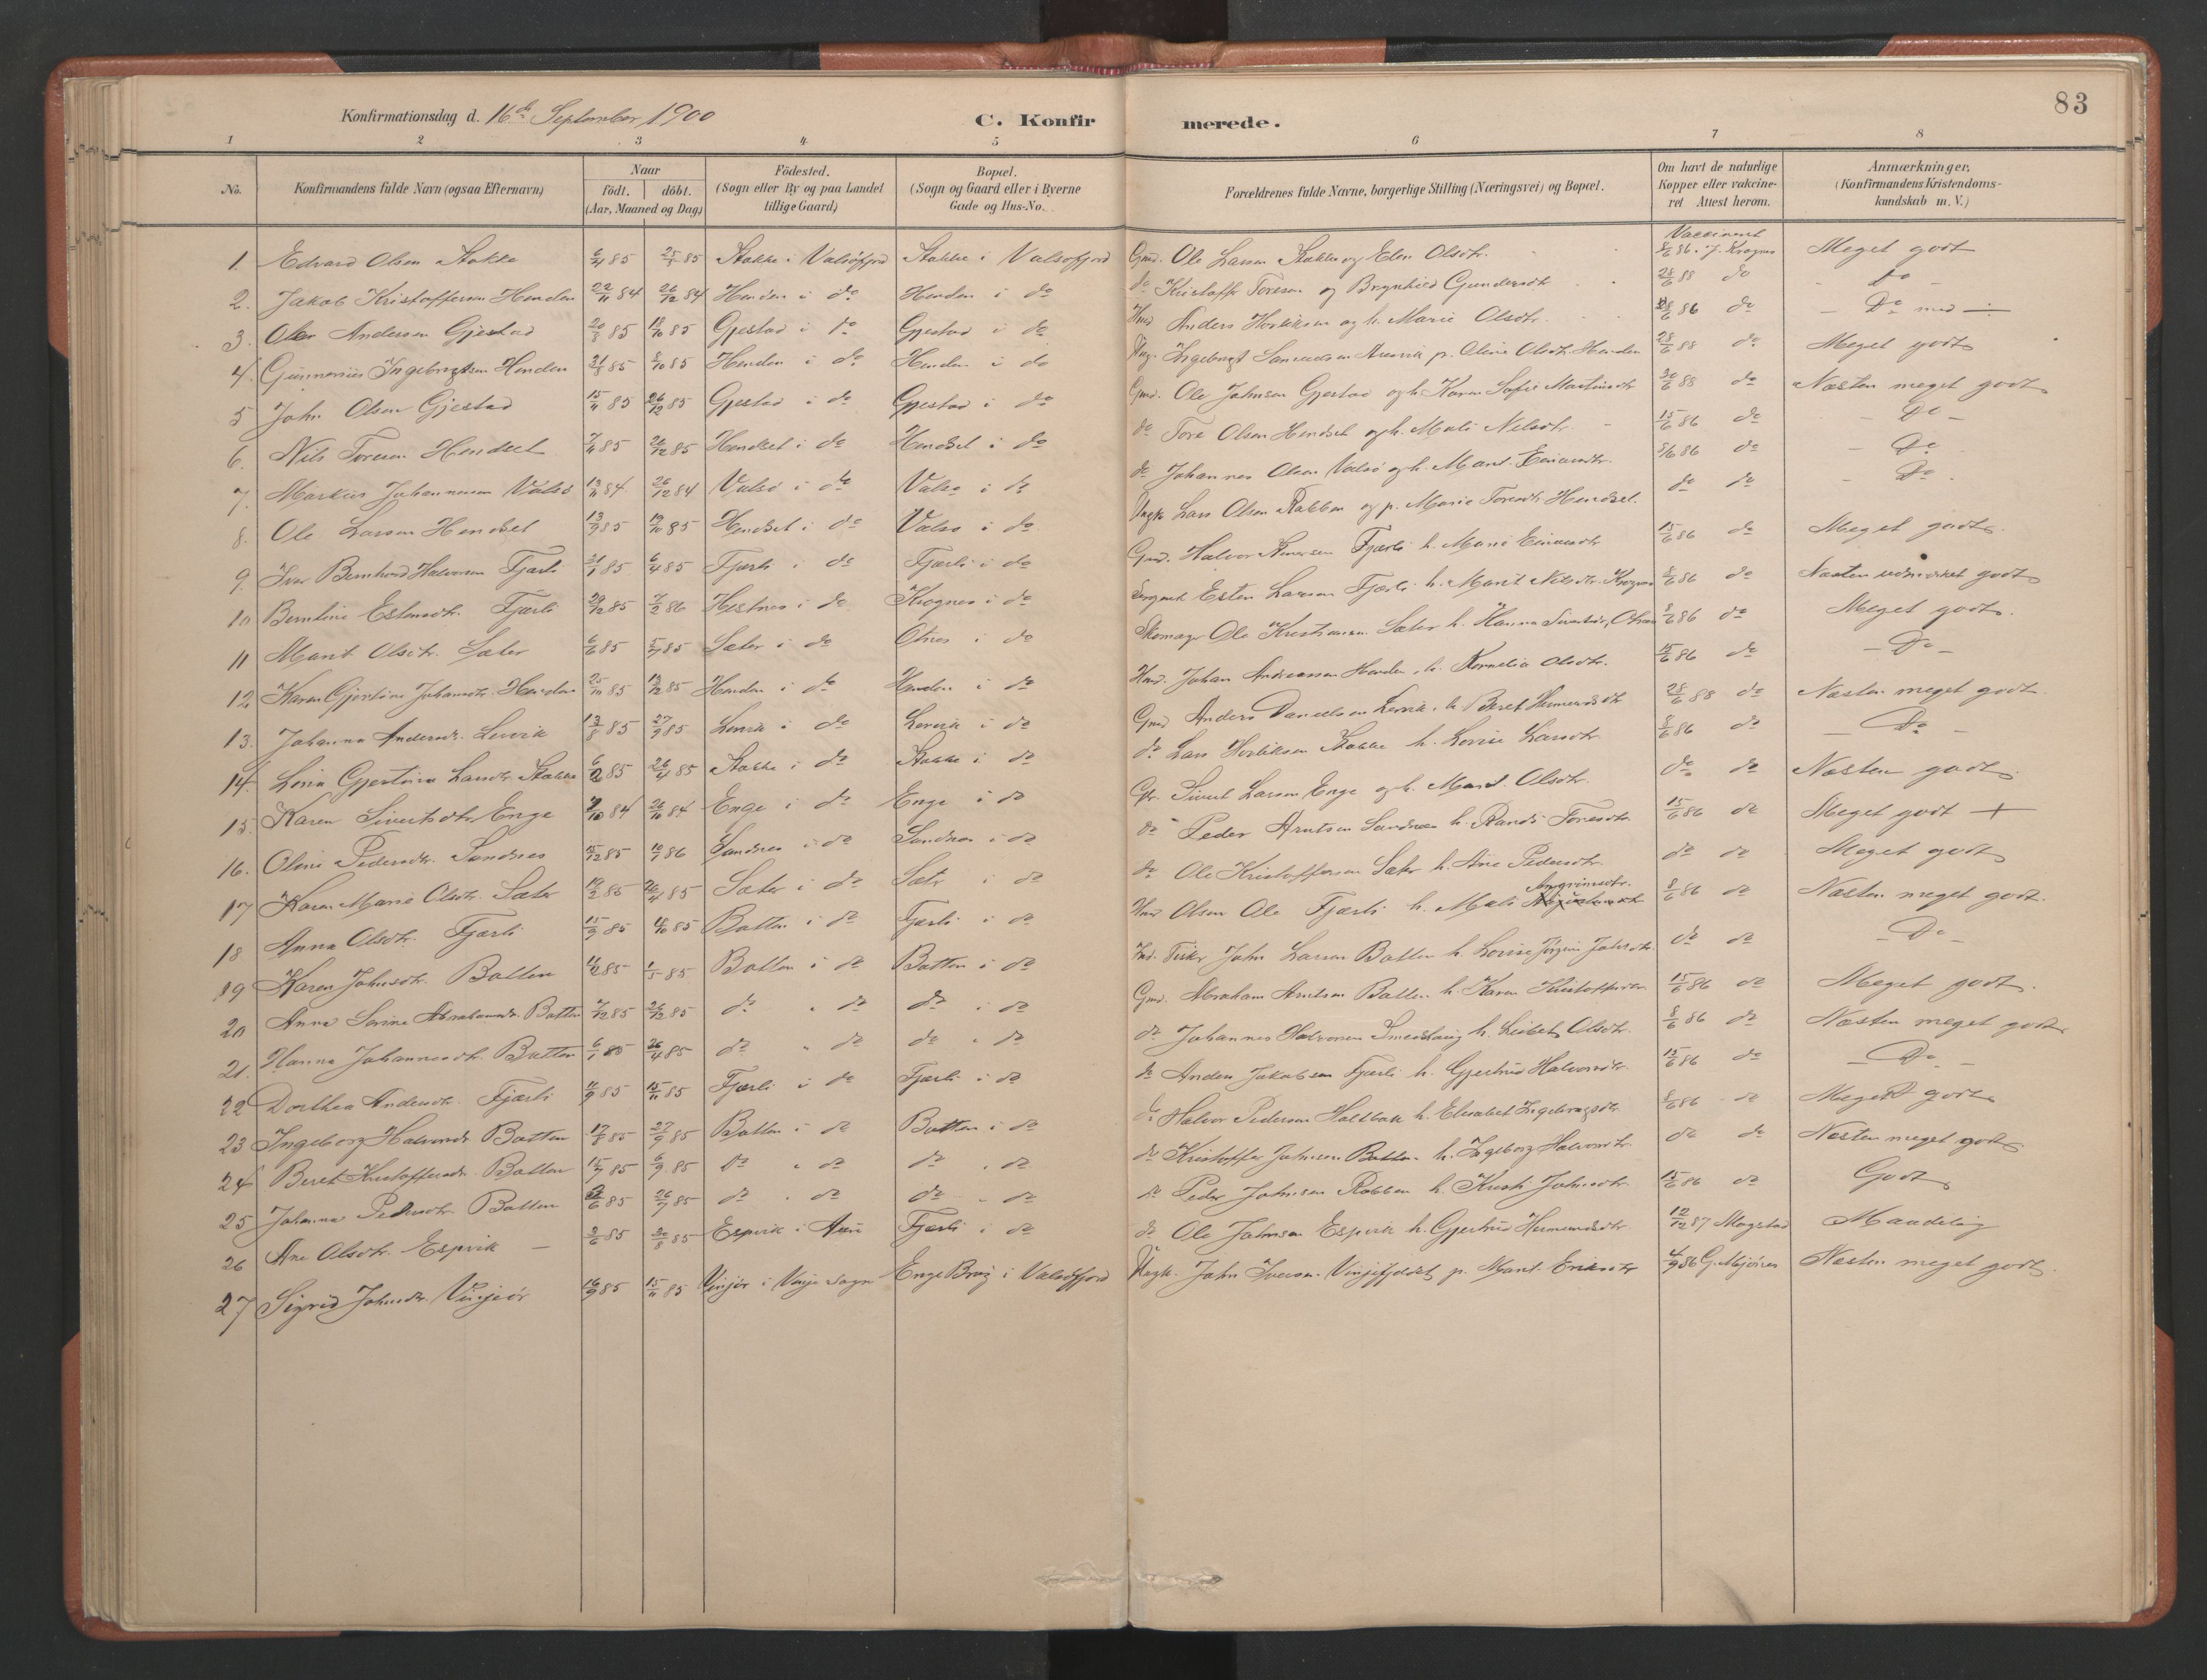 83
Konfirmationsdag d. 16de September 1900
C. Konfirmerede.
1 2 3 4 5 6 7 8
No. Konfirmandens fulde Navn (ogsaa Efternavn) Naar födt. döbt. (Aar, Maaned og Dag) Födested. (Sogn eller By og paa Landet tillige Gaard) Bopæl. (Sogn og Gaard eller i Byerne Gade og Hus-No. Forældrenes fulde Navne, borgerlige Stilling (Næringsvei) og Bopæl. Om havt de naturlige Kopper eller vakcineret Attest herom. Anmærkninger, (Konfirmandens Kristendomskundskab m. V.)
Vaccineret
1. Edvard Olsen Stokke 6/4 85 25/5 85 Stokke i Valsöfjord Stokke i Valsöfjord Gmd. Ole Larsen Stokke og Elen Olsdtr. 8/6 86. J. Krognes Meget godt
2. Jakob Kristoffersen Henden 22/11 84 26/12 84 Henden i do Henden i do do Kristoffer Toresen og Brynhild Gundersdtr 28/6 88 do Do
3. Olav Andersen Gjestad 20/8 85 18/10 85 Gjestad i do Gjestad i do Hmd Anders Horliksen og h. Marie Olsdtr. 28/6 86 do Do med —
4. Gunnerius Ingebrigtsen Henden 21/8 85 8/10 85 Henden i do Henden i do Ung. Ingebrigt Samuelsen Aresvik p. Oline Olsdtr. Henden 28/6 88 do Meget godt
5 John Olsen Gjestad 15/11 85 26/12 85 Gjestad i do Gjestad i do Gmd. Ole Johnsen Gjestad og h. Karen Sofie Martinsdtr 30/6 88 do Næsten meget godt
6. Nils Toresen Hendset 7/11 85 26/12 85 Hendset i do Hendset i do do Tore Olsen Hendset og h. Mali Nilsdtr. 15/6 86 do Do
7. Markus Johannesen Valsö 13/11 84 26/12 84 Valsö i do Valsö i do do Johannes Olsen Valsö og h. Marit Einarsdtr. 8/6 86 do Do
8. Ole Larsen Hendset 13/9 85 19/10 85 Hendset i do Valsö i do Ungk Lars Olsen Rabben og p. Marie Toresdtr Hendset. do do Do
9. Ivar Bernhard Halvorsen Fjærli 21/1 85 6/4 85 Fjærli i do Fjærli i do Gmd. Halvor Iversen Fjærli h. Marie Einarsdtr 15/6 86 do Meget godt.
10 Berntine Estensdtr. Fjærli 29/12 85 7/2 86 Hestnes i do Krognes i do Sergeant Esten Larsen Fjærli h. Marit Nilsdtr. Krognes 8/6 86 do Næsten udmærket godt
11 Marit Olsdtr. Sæter 6/6 85 5/7 85 Sæter i do Otnes i do Skomager Ole Kristiansen Sæter h. Hanna Sivertsdtr, Otnes 8/6 86 do Meget godt.
12 Karen Gjertine Johansdtr. Henden 25/10 85 13/12 85 Henden i do Henden i do Hmd. Johan Andreassen Henden, h. Kornelia Olsdtr. 15/6 86 do Do
13. Johanna Andersdtr. Lervik 13/8 85 27/9 85 Lervik i do Lervik i do Gmd Anders Danielsen Lervik, h. Beret Hemendsdtr 28/6 88 do Næsten meget godt.
14. Lovise Gjertine Larsdtr. Stokke 6/2 85 26/4 85 Stokke i do Stokke i do do Lars Horliksen Stokke h. Lovise Larsdtr. 8/6 86 do Do
15. Karen Sivertsdtr Enge 7/10 84 26/10 84 Enge i do Enge i do Gr. Sivert Larsen Enge og h. Marit Olsdtr. do do Næsten godt.
16. Oline Pedersdtr. Sandnes 15/12 85 10/1 86 Sandnes i do Sandnes i do do Peder Arntsen Sandnes h. Randi Toresdtr. 15/6 86 do Meget godt +
17 Karen Marie Olsdtr. Sæter 19/2 85 26/4 85 Sæter i do Sæter i do do Ole Kristoffersen Sæter h. Ane Pedersdtr. do do Meget godt
18 Anna Olsdtr. Fjærli 15/9 85 18/10 85 Botten i do Fjærli i do Hmd Olsen Ole Fjærli h. Mali Arngrimsdtr. 8/6 86 do Næsten meget godt.
19 Karen Johnsdtr. Botten 11/2 85 1/5 85 Botten i do Botten i do Ind. Fisker John Larsen Botten h. Lovise Jørgine Johnsdtr. do do Do
20 Anna Sorine Abrahamsdr. Botten 7/12 85 26/12 85 do „ do do „ do Gmd. Abraham Arntsen Botten h. Karen Kristoffersdtr 15/6 86 do Meget godt.
21. Hanna Johannesdtr. Botten 6/1 85 26/4 85 do „ do do „ do do Johannes Halvorsen Smedhaug h. Lisbet Olsdtr. 8/6 86 do Næsten meget godt
22 Dorthea Andersdtr. Fjærli 11/9 85 15/11 85 Fjærli i do Fjærli i do do Anders Jakobsen Fjærli h. Gjertrud Halvorsdtr. 15/6 86 do Do
23 Ingeborg Halvorsdr Botten 17/8 85 27/9 85 Botten i do Botten i do do Halvor Pedersen Holtbak h. Elisabet Ingebrigtsdtr. 8/6 86 do Meget godt
24 Beret Kristoffersdr. Botten 15/7 85 6/9 85 do „ do do „ do do Kristoffer Johnsen Botten h. Ingeborg Halvorsdtr. do do Næsten meget godt
25 Johanna Pedersdtr. Botten 2/6 85 26/7 85 do „ do do „ do do Peder Johnsen Robben h. Kristi Johnsdtr. 15/6 86 do Godt
26 Ane Olsdtr. Espvik — 2/6 85 30/8 85 Espvik i Aure Fjærli i do do Ole Johnsen Espvik h. Gjertrud Hemendsdtr. 12/12 87 Magstad Maadelig
27 Sigrid Johnsdr. Vinjeör 16/9 85 15/11 85 Vinjeör i Vinje Sogn Enge Brug i Valsöfjord Ungk. John Iversen Vinjefjeldet p. Marit Eriksdtr 4/9 86 G. Mjöinen Næsten meget godt.